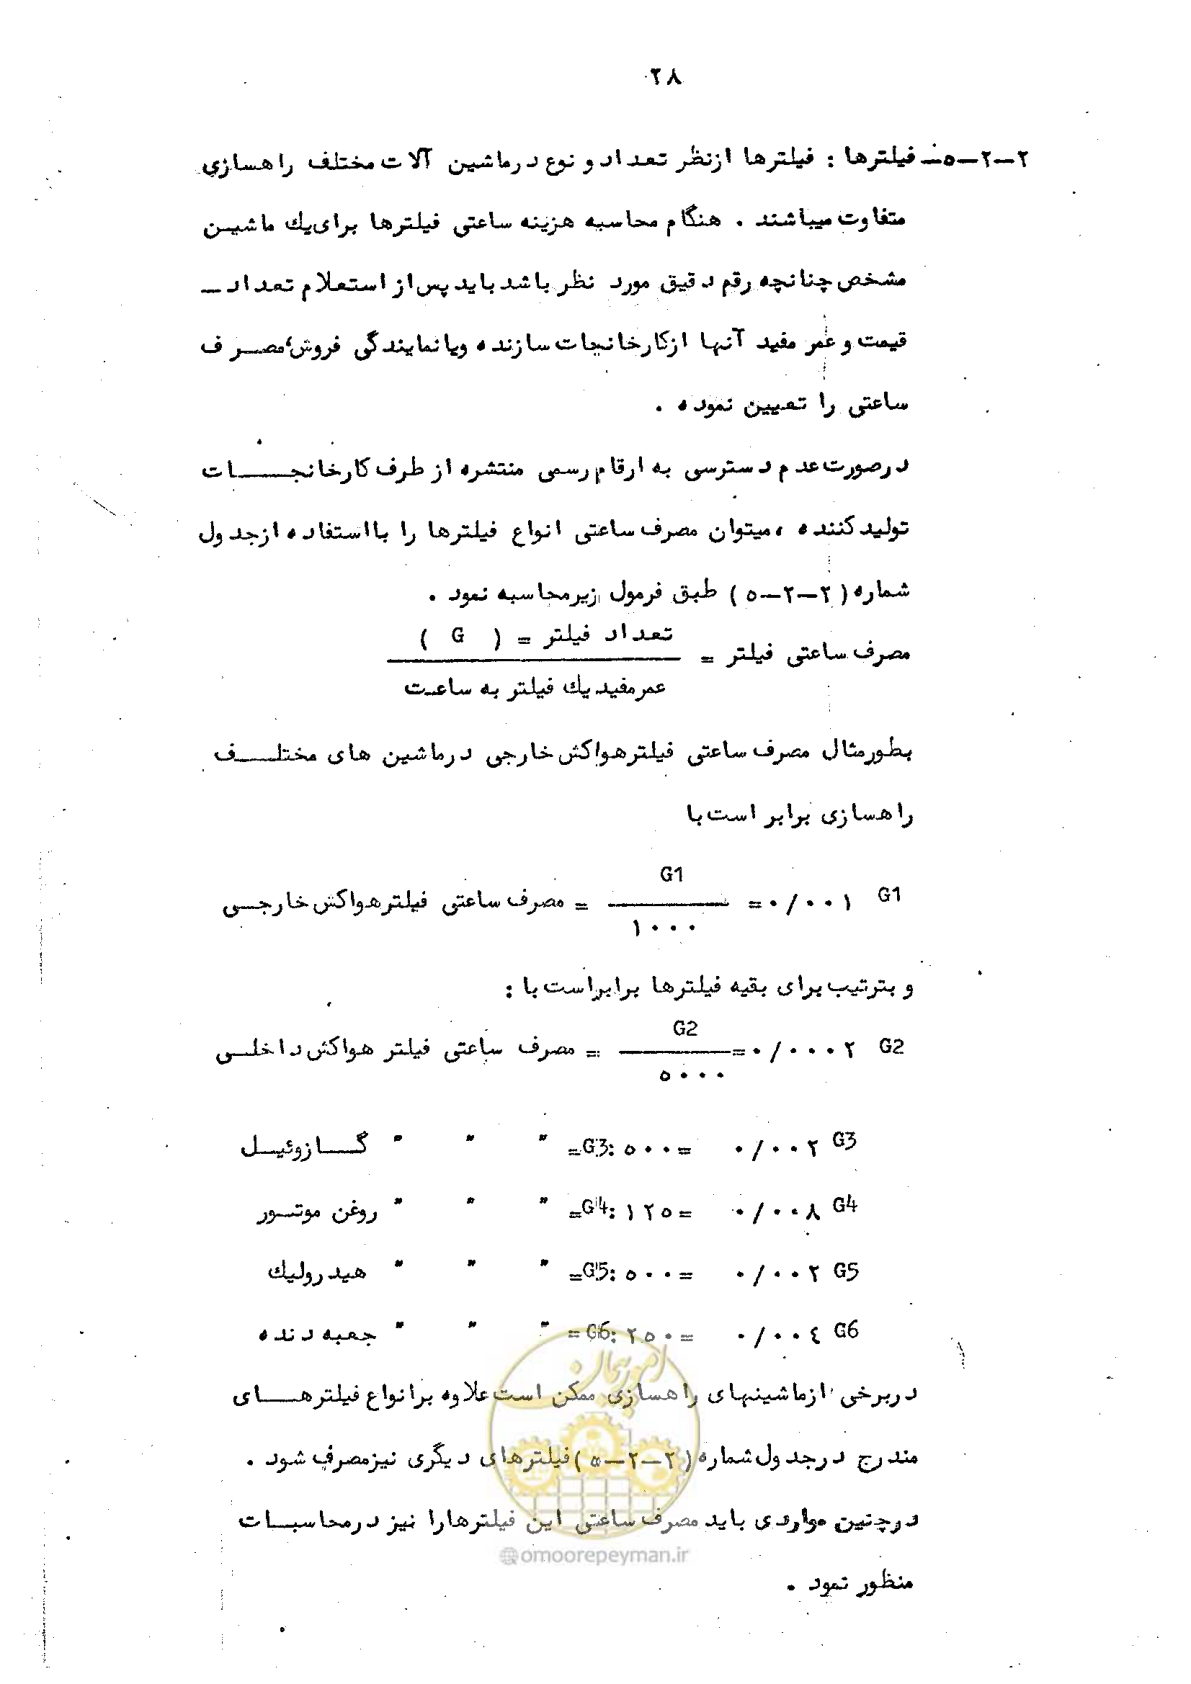 ۲۸
۲-۲-۵- فیلترها : فیلترها ازنظر تعداد و نوع درماشین آلات مختلف راهسازی
متفاوت میباشند . هنگام محاسبه هزینه ساعتی فیلترها برای یك ماشین
مشخص چنانچه رقم دقیق مورد نظر باشد باید پس از استعلام تعداد -
قیمت و عمر مفید آنها ازکارخانجات سازنده ویا نمایندگی فروش، مصرف
ساعتی را تعیین نموده .
درصورت عدم دسترسی به ارقام رسمی منتشره از طرف کارخانجات
تولیدکننده ، میتوان مصرف ساعتی انواع فیلترها را بااستفاده ازجدول
شماره ( ۲-۲-۵ ) طبق فرمول زیرمحاسبه نمود .
تعداد فیلتر = ( G )
مصرف ساعتی فیلتر =
عمرمفید یك فیلتر به ساعت
بطورمثال مصرف ساعتی فیلترهواکش خارجی درماشین های مختلف
راهسازی برابر است با
G1
مصرف ساعتی فیلترهواکش خارجی = = ۰/۰۰۱ G1
۱۰۰۰
و بترتیب برای بقیه فیلترها برابراست با :
G2
مصرف ساعتی فیلتر هواکش داخلی = = ۰/۰۰۰۲ G2
۵۰۰۰
گازوئیل " " " =G3: ۵۰۰= ۰/۰۰۲ G3
روغن موتور " " " =G4: ۱۲۵= ۰/۰۰۸ G4
هیدرولیك " " " =G5: ۵۰۰= ۰/۰۰۲ G5
جعبه دنده " " " =G6: ۲۵۰= ۰/۰۰٤ G6
دربرخی ازماشینهای راهسازی ممکن است علاوه برانواع فیلترهای
مندرج درجدول شماره ( ۲-۲-۵ ) فیلترهای دیگری نیزمصرف شود .
درچنین مواردی باید مصرف ساعتی این فیلترهارا نیز درمحاسبات
منظور نمود .
امور پیمان
@omoorepeyman.ir